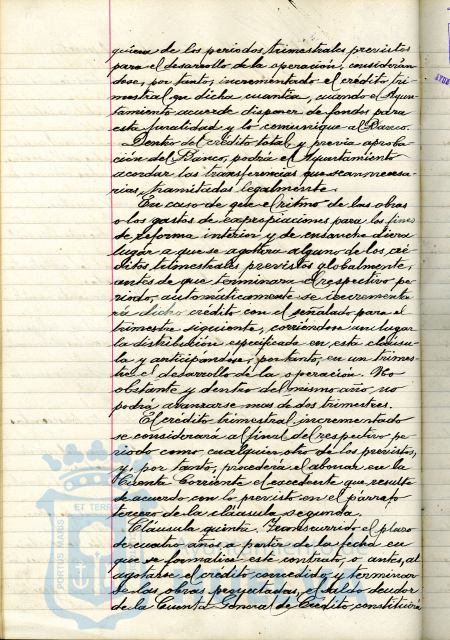 quiera de los periodos trimestrales previstos
para el desarrollo de la operación, considerán
dose, por tanto, incrementado el crédito tri-
mestral en dicha cuantía, cuando el Ayun-
tamiento acuerde disponer de fondos para
esta finalidad y lo comunique al Banco.
Dentro del crédito total, y previa aproba-
ción del Banco, podrá el Ayuntamiento
acordar las transferencias que sean necesa-
rias, tramitadas legalmente.
En caso de que el ritmo de las obras
o los gastos de expropiaciones para los fines
de reforma interior y de ensanche diera
lugar a que se agotara alguno de los cré-
ditos trimestrales previstos globalmente,
antes de que terminara el respectivo pe-
riodo, automáticamente se incrementa-
rá dicho crédito con el señalado para el
trimestre siguiente, corriéndose un lugar
la distribución especificada en esta cláusu-
la y anticipándose, por tanto, en un trimes-
tre el desarrollo de la operación. No
obstante y dentro del mismo año, no
podrá avanzarse mas de dos trimestres.
El crédito trimestral incrementado
se considerará al final del respectivo pe
riodo como cualquier otro de los previstos,
y, por tanto, procederá el abonar en la
Cuenta Corriente el excedente que resulte
de acuerdo con lo previsto en el párrafo
tercero de la cláusula segunda.
Cláusula quinta. Transcurrido el plazo
de cuatro años a partir de la fecha en
que se formalice este contrato, o antes, al
agotarse el crédito concedido y terminar
de las obras proyectadas, el saldo deudor
de la Cuenta General de Crédito constituirá
PORTUS MARIS
ET TERRAE
Ayuntamiento de
HUELVA